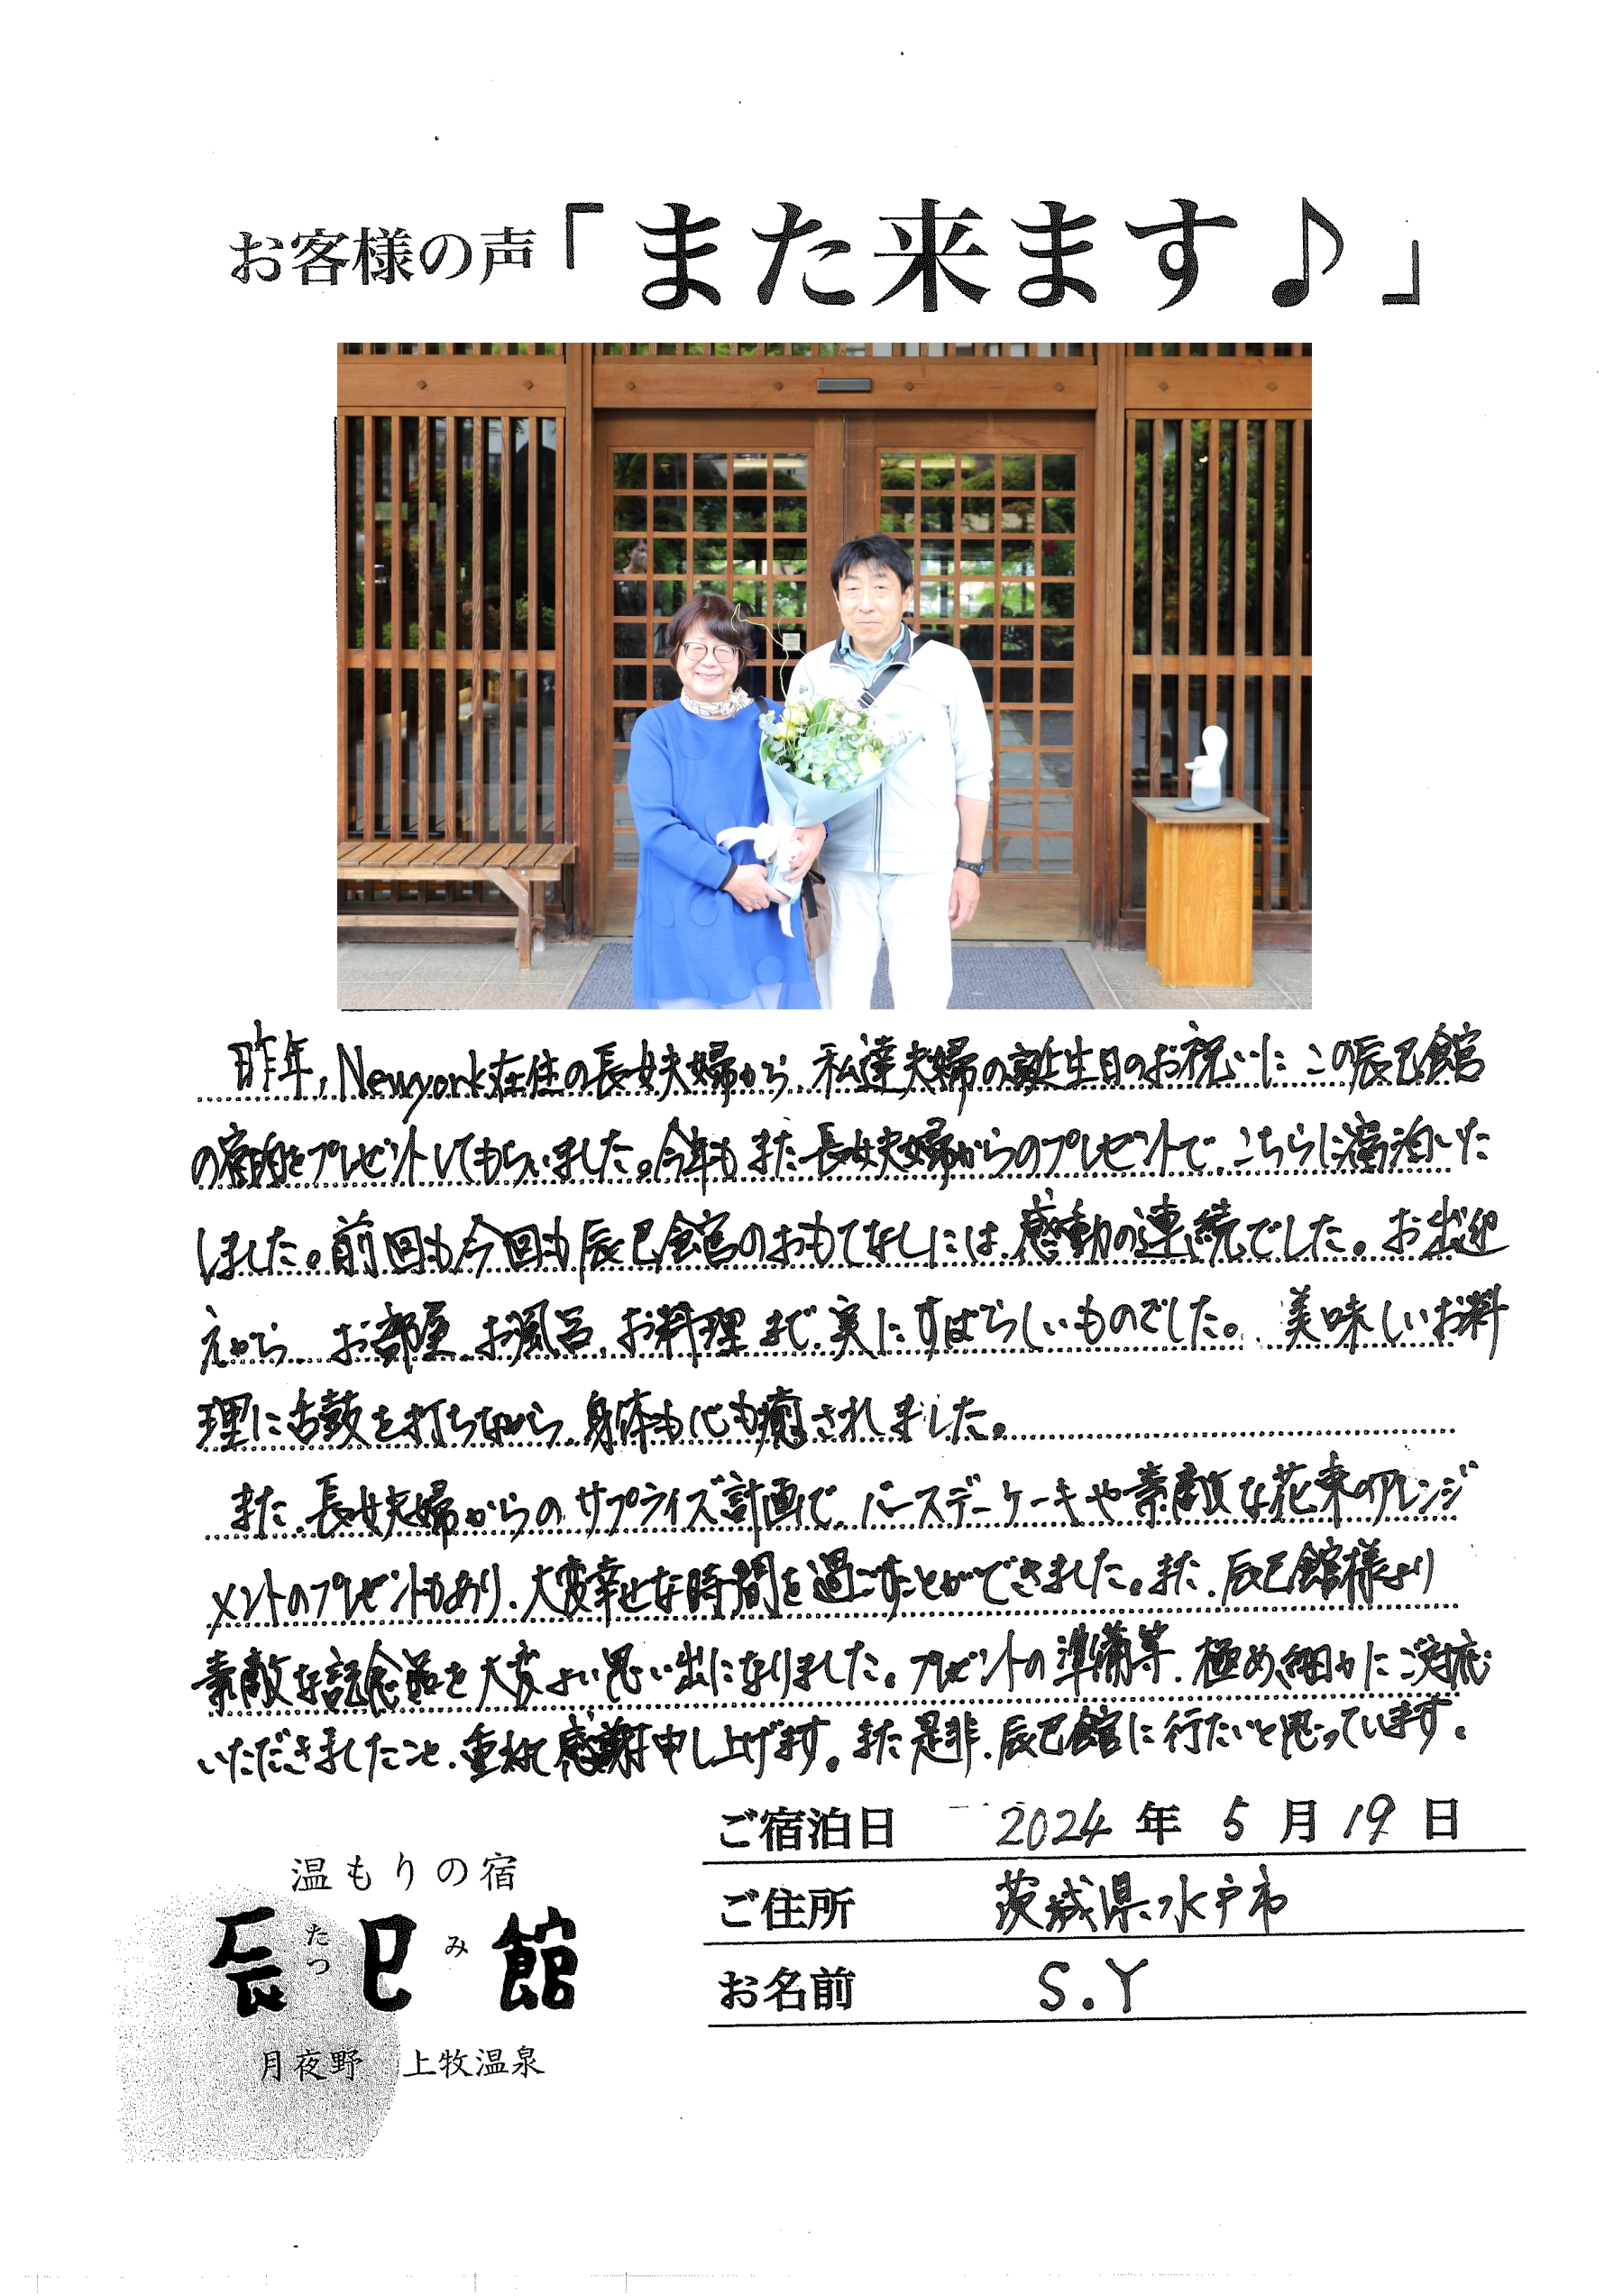 お客様の声「また来ます♪」
昨年, Newyork在住の長女夫婦から、私達夫婦の誕生日のお祝いに この辰巳館
の宿泊をプレゼントしてもらいました。今年も また長女夫婦からのプレゼントで、こちらに宿泊いた
しました。前回も今回も辰巳館のおもてなしには、感動の連続でした。お出迎
えから、お部屋、お風呂、お料理まで、実にすばらしいものでした。美味しいお料
理に舌鼓を打ちながら、身体も心も癒されました。
また、長女夫婦からのサプライズ計画で、バースデーケーキや素敵な花束のアレンジ
メントのプレゼントもあり、大変幸せな時間を過ごすことができました。また、辰巳館様より
素敵な記念品を 大変よい思い出になりました。プレゼントの準備等、極め細かにご対応
いただきましたこと、重ねて感謝申し上げます。また是非、辰巳館に行たいと思っています。
ご宿泊日 2024 年 5 月 19 日
ご住所 茨城県水戸市
お名前 S.Y
温もりの宿
辰巳館
たつ み
月夜野 上牧温泉